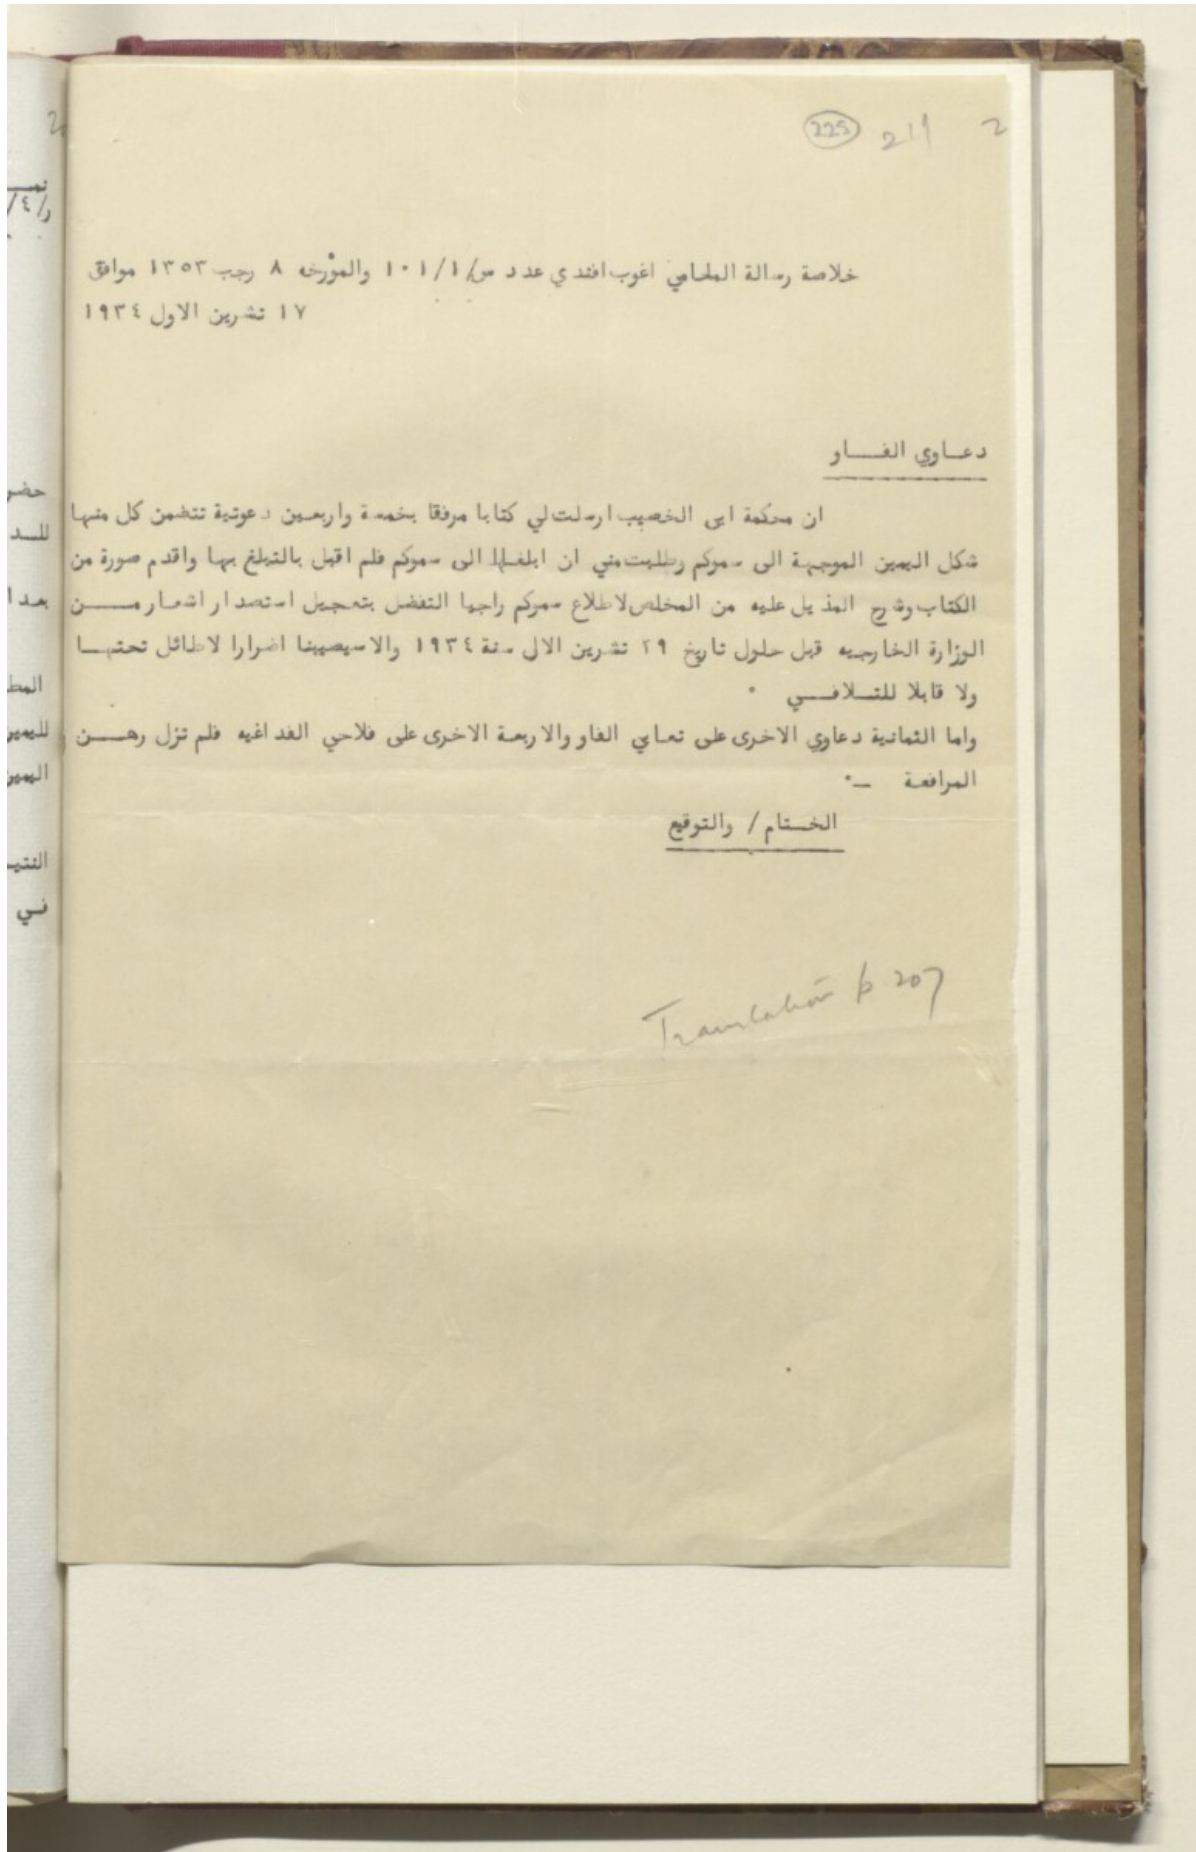 225 211 2
خلاصة رسالة المحامي اغوب افندي عدد س/١/١٠١ والمؤرخه ٨ رجب ١٣٥٣ موافق
١٧ تشرين الاول ١٩٣٤
دعاوي الفاو
ان محكمة ابى الخصيب ارسلت لي كتابا مرفقا بخمسة واربعين دعوتية تتضمن كل منها
شكل اليمين الموجهة الى سموكم وطلبت مني ان ابلغها الى سموكم فلم اقبل بالتبلغ بها واقدم صورة من
الكتاب وشرح المذيل عليه من المخلص لاطلاع سموكم راجيا التفضل بتعجيل استصدار اشعار من
الوزارة الخارجيه قبل حلول تاريخ ٢٩ تشرين الال سنة ١٩٣٤ والا سيصيبنا اضرارا لاطائل تحتها
ولا قابلا للتلافي ٠
واما الثمانية دعاوي الاخرى على تعابي الفاو والاربعة الاخرى على فلاحي الفداغيه فلم تزل رهن
المرافعة –٠
الختام / والتوقيع
Translation p 207
نمـ
ر/٤/
حضر
للـد
بعد ا
المط
لليمين
اليمين
في